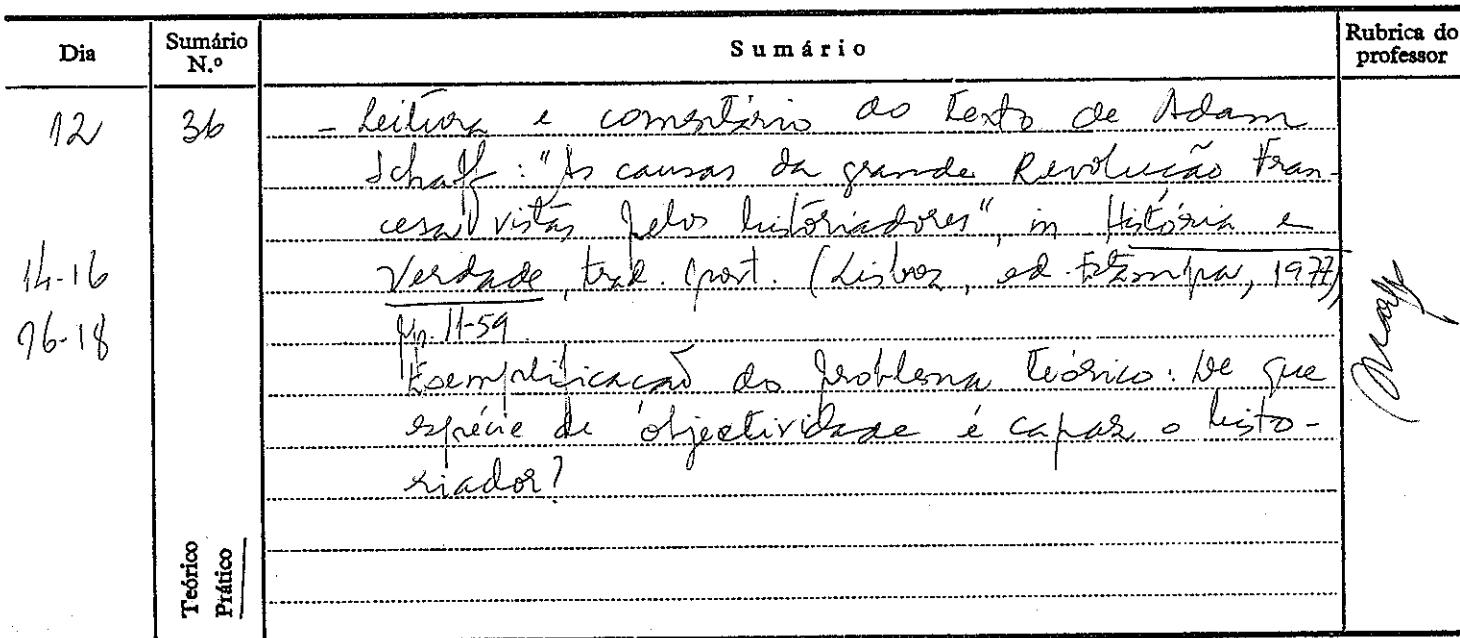 Dia
Sumário N.º
Sumário
Rubrica do professor
12
36
14-16
16-18
- Leitura e comentário do texto de Adam
Schaff: "As causas da grande Revolução Fran-
cesa vistas pelos historiadores", in História e
Verdade, trad. port. (Lisboa, ed. Estampa, 1977),
pp. 11-59.
Exemplificação do problema teórico: De que
espécie de objectividade é capaz o histo-
riador?
Teórico
Prático